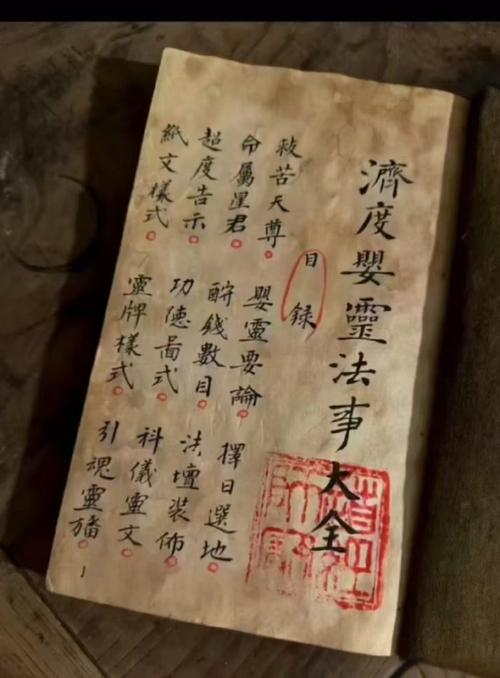 濟度嬰靈法事大全
目錄
救苦天尊 嬰靈要論 擇日選地
命屬星君 酧錢數目 法壇裝佈
超度告示 功德啚式 科儀靈文
紙文樣式 靈牌樣式 引魂靈旛
1